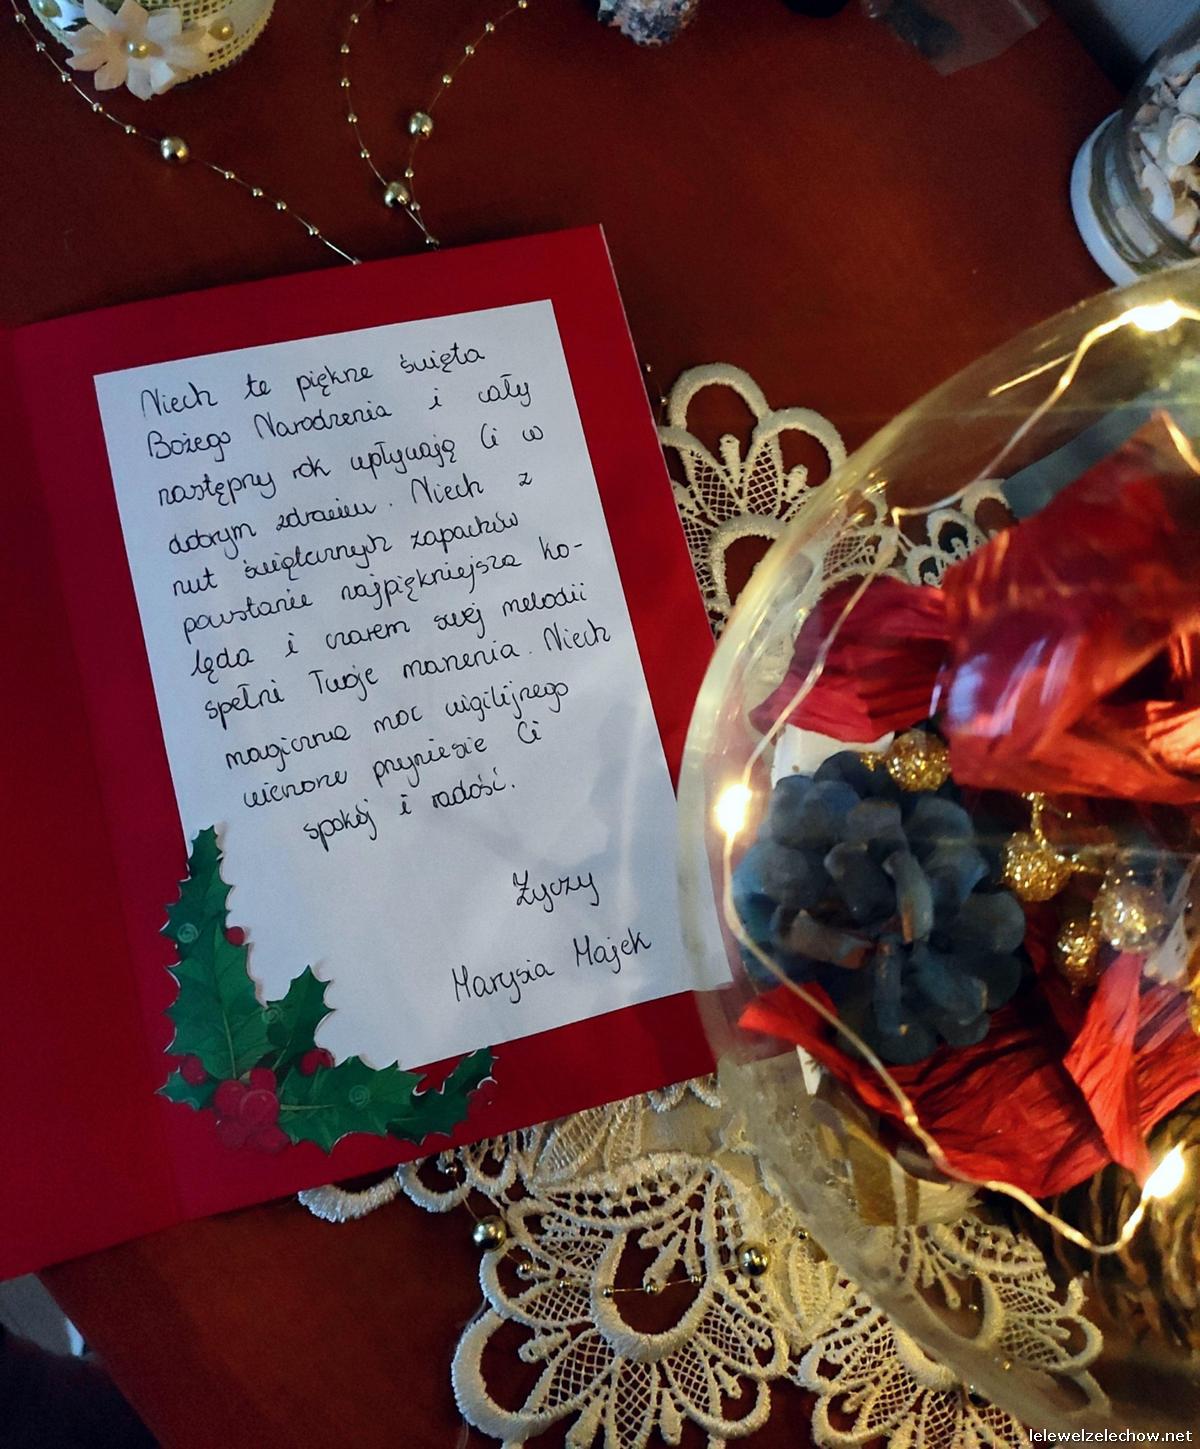 Niech te piękne święta
Bożego Narodzenia i cały
następny rok upływają Ci w
dobrym zdrowiu. Niech z
nut świątecznych zapachów
powstanie najpiękniejsza ko-
lęda i czarem swej melodii
spełni Twoje marzenia. Niech
magiczna moc wigilijnego
wieczoru przyniesie Ci
spokój i radość.
Życzy
Marysia Majek
lelewelzelechow.net